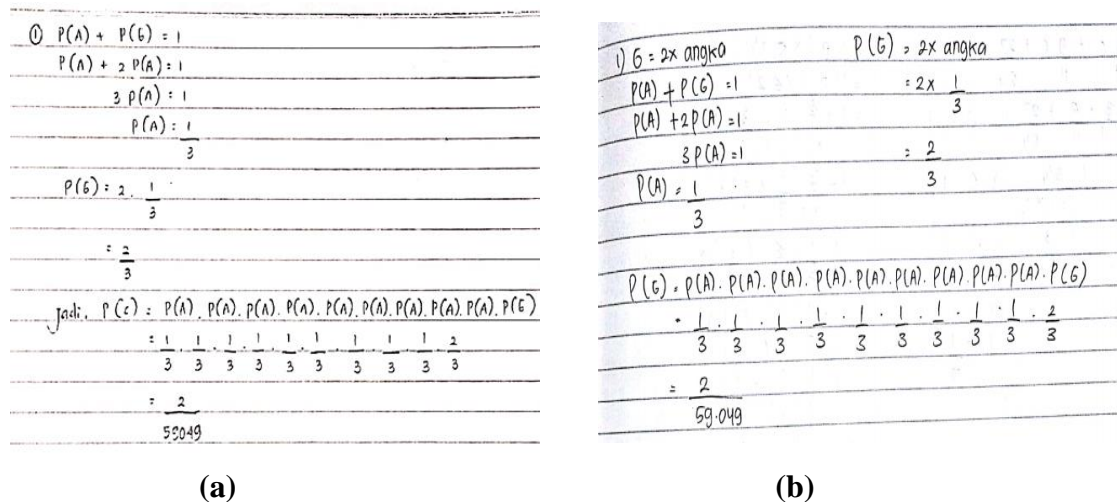 ① P(A) + P(G) = 1
P(A) + 2 P(A) = 1
3 P(A) = 1
P(A) = 1/3
P(G) = 2 . 1/3
= 2/3
Jadi, P(G) = P(A) . P(A) . P(A) . P(A) . P(A) . P(A) . P(A) . P(A) . P(A) . P(G)
= 1/3 . 1/3 . 1/3 . 1/3 . 1/3 . 1/3 . 1/3 . 1/3 . 1/3 . 2/3
= 2/59049
(a)
1) G = 2x angka
P(A) + P(G) = 1
P(A) + 2P(A) = 1
3P(A) = 1
P(A) = 1/3
P(G) = 2x angka
= 2x 1/3
= 2/3
P(G) = P(A) . P(A) . P(A) . P(A) . P(A) . P(A) . P(A) . P(A) . P(A) . P(G)
= 1/3 . 1/3 . 1/3 . 1/3 . 1/3 . 1/3 . 1/3 . 1/3 . 1/3 . 2/3
= 2/59.049
(b)